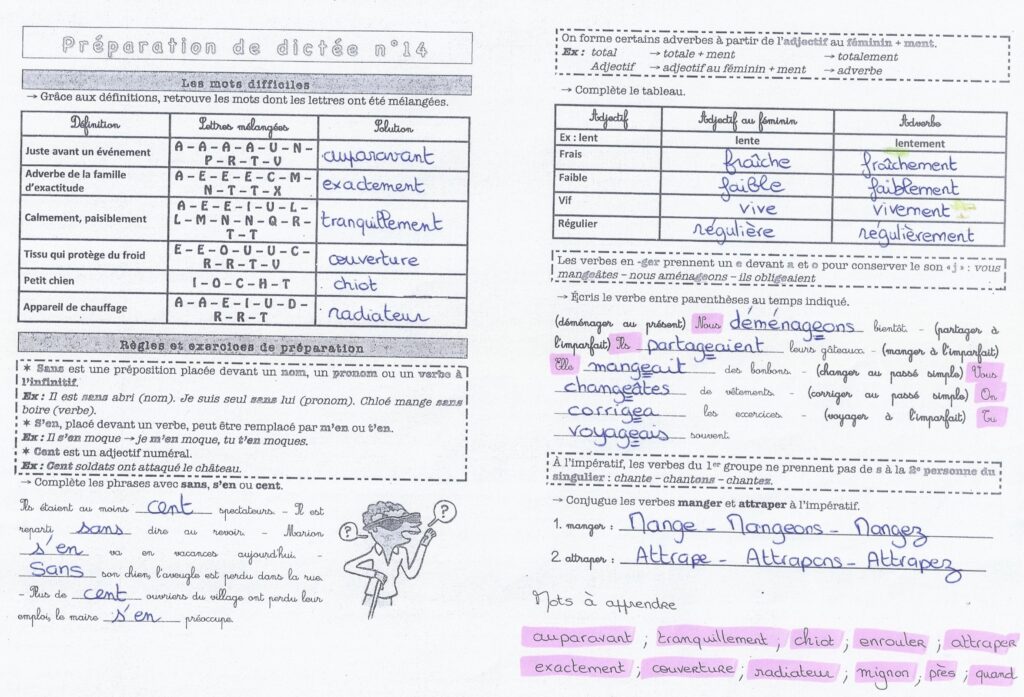 Préparation de dictée n°14
Les mots difficiles
→ Grâce aux définitions, retrouve les mots dont les lettres ont été mélangées.
Définition Lettres mélangées Solution
Juste avant un événement A – A – A – A – U – N – P – R – T – V auparavant
Adverbe de la famille d'exactitude A – E – E – E – C – M – N – T – T – X exactement
Calmement, paisiblement A – E – E – I – U – L – L – M – N – N – Q – R – T – T tranquillement
Tissu qui protège du froid E – E – O – U – U – C – R – R – T – V couverture
Petit chien I – O – C – H – T chiot
Appareil de chauffage A – A – E – I – U – D – R – R – T radiateur
Règles et exercices de préparation
* Sans est une préposition placée devant un nom, un pronom ou un verbe à
l'infinitif.
Ex : Il est sans abri (nom). Je suis seul sans lui (pronom). Chloé mange sans
boire (verbe).
* S'en, placé devant un verbe, peut être remplacé par m'en ou t'en.
Ex : Il s'en moque → je m'en moque, tu t'en moques.
* Cent est un adjectif numéral.
Ex : Cent soldats ont attaqué le château.
→ Complète les phrases avec sans, s'en ou cent.
Ils étaient au moins cent spectateurs. – Il est
reparti sans dire au revoir. – Marion
s'en va en vacances aujourd'hui. –
Sans son chien, l'aveugle est perdu dans la rue.
– Plus de cent ouvriers du village ont perdu leur
emploi, le maire s'en préoccupe.
? ?
On forme certains adverbes à partir de l'adjectif au féminin + ment.
Ex : total → totale + ment → totalement
Adjectif → adjectif au féminin + ment → adverbe
→ Complète le tableau.
Adjectif Adjectif au féminin Adverbe
Ex : lent lente lentement
Frais fraîche fraîchement
Faible faible faiblement
Vif vive vivement
Régulier régulière régulièrement
Les verbes en -ger prennent un e devant a et o pour conserver le son « j » : vous
mangeâtes – nous aménageons – ils obligeaient
→ Écris le verbe entre parenthèses au temps indiqué.
(déménager au présent) Nous déménageons bientôt. – (partager à
l'imparfait) Ils partageaient leurs gâteaux. – (manger à l'imparfait)
Elle mangeait des bonbons. – (changer au passé simple) Vous
changeâtes de vêtements. – (corriger au passé simple) On
corrigea les exercices. – (voyager à l'imparfait) Tu
voyageais souvent.
À l'impératif, les verbes du 1er groupe ne prennent pas de s à la 2e personne du
singulier : chante – chantons – chantez.
→ Conjugue les verbes manger et attraper à l'impératif.
1. manger : Mange – Mangeons – Mangez
2 attraper : Attrape – Attrapons – Attrapez
Mots à apprendre
auparavant ; tranquillement ; chiot ; enrouler ; attraper
exactement ; couverture ; radiateur ; mignon ; près ; quand